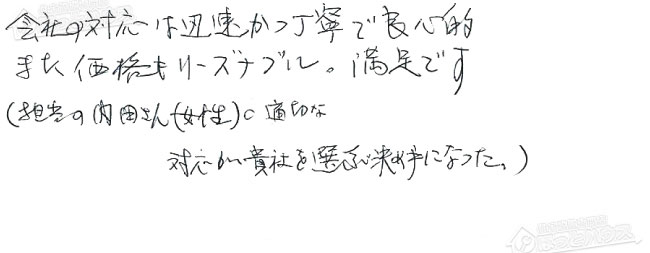 会社の対応は迅速かつ丁寧で良心的
また価格もリーズナブル。満足です
(担当の内田さん(女性)の適切な
対応が貴社を選ぶ決め手になった。)